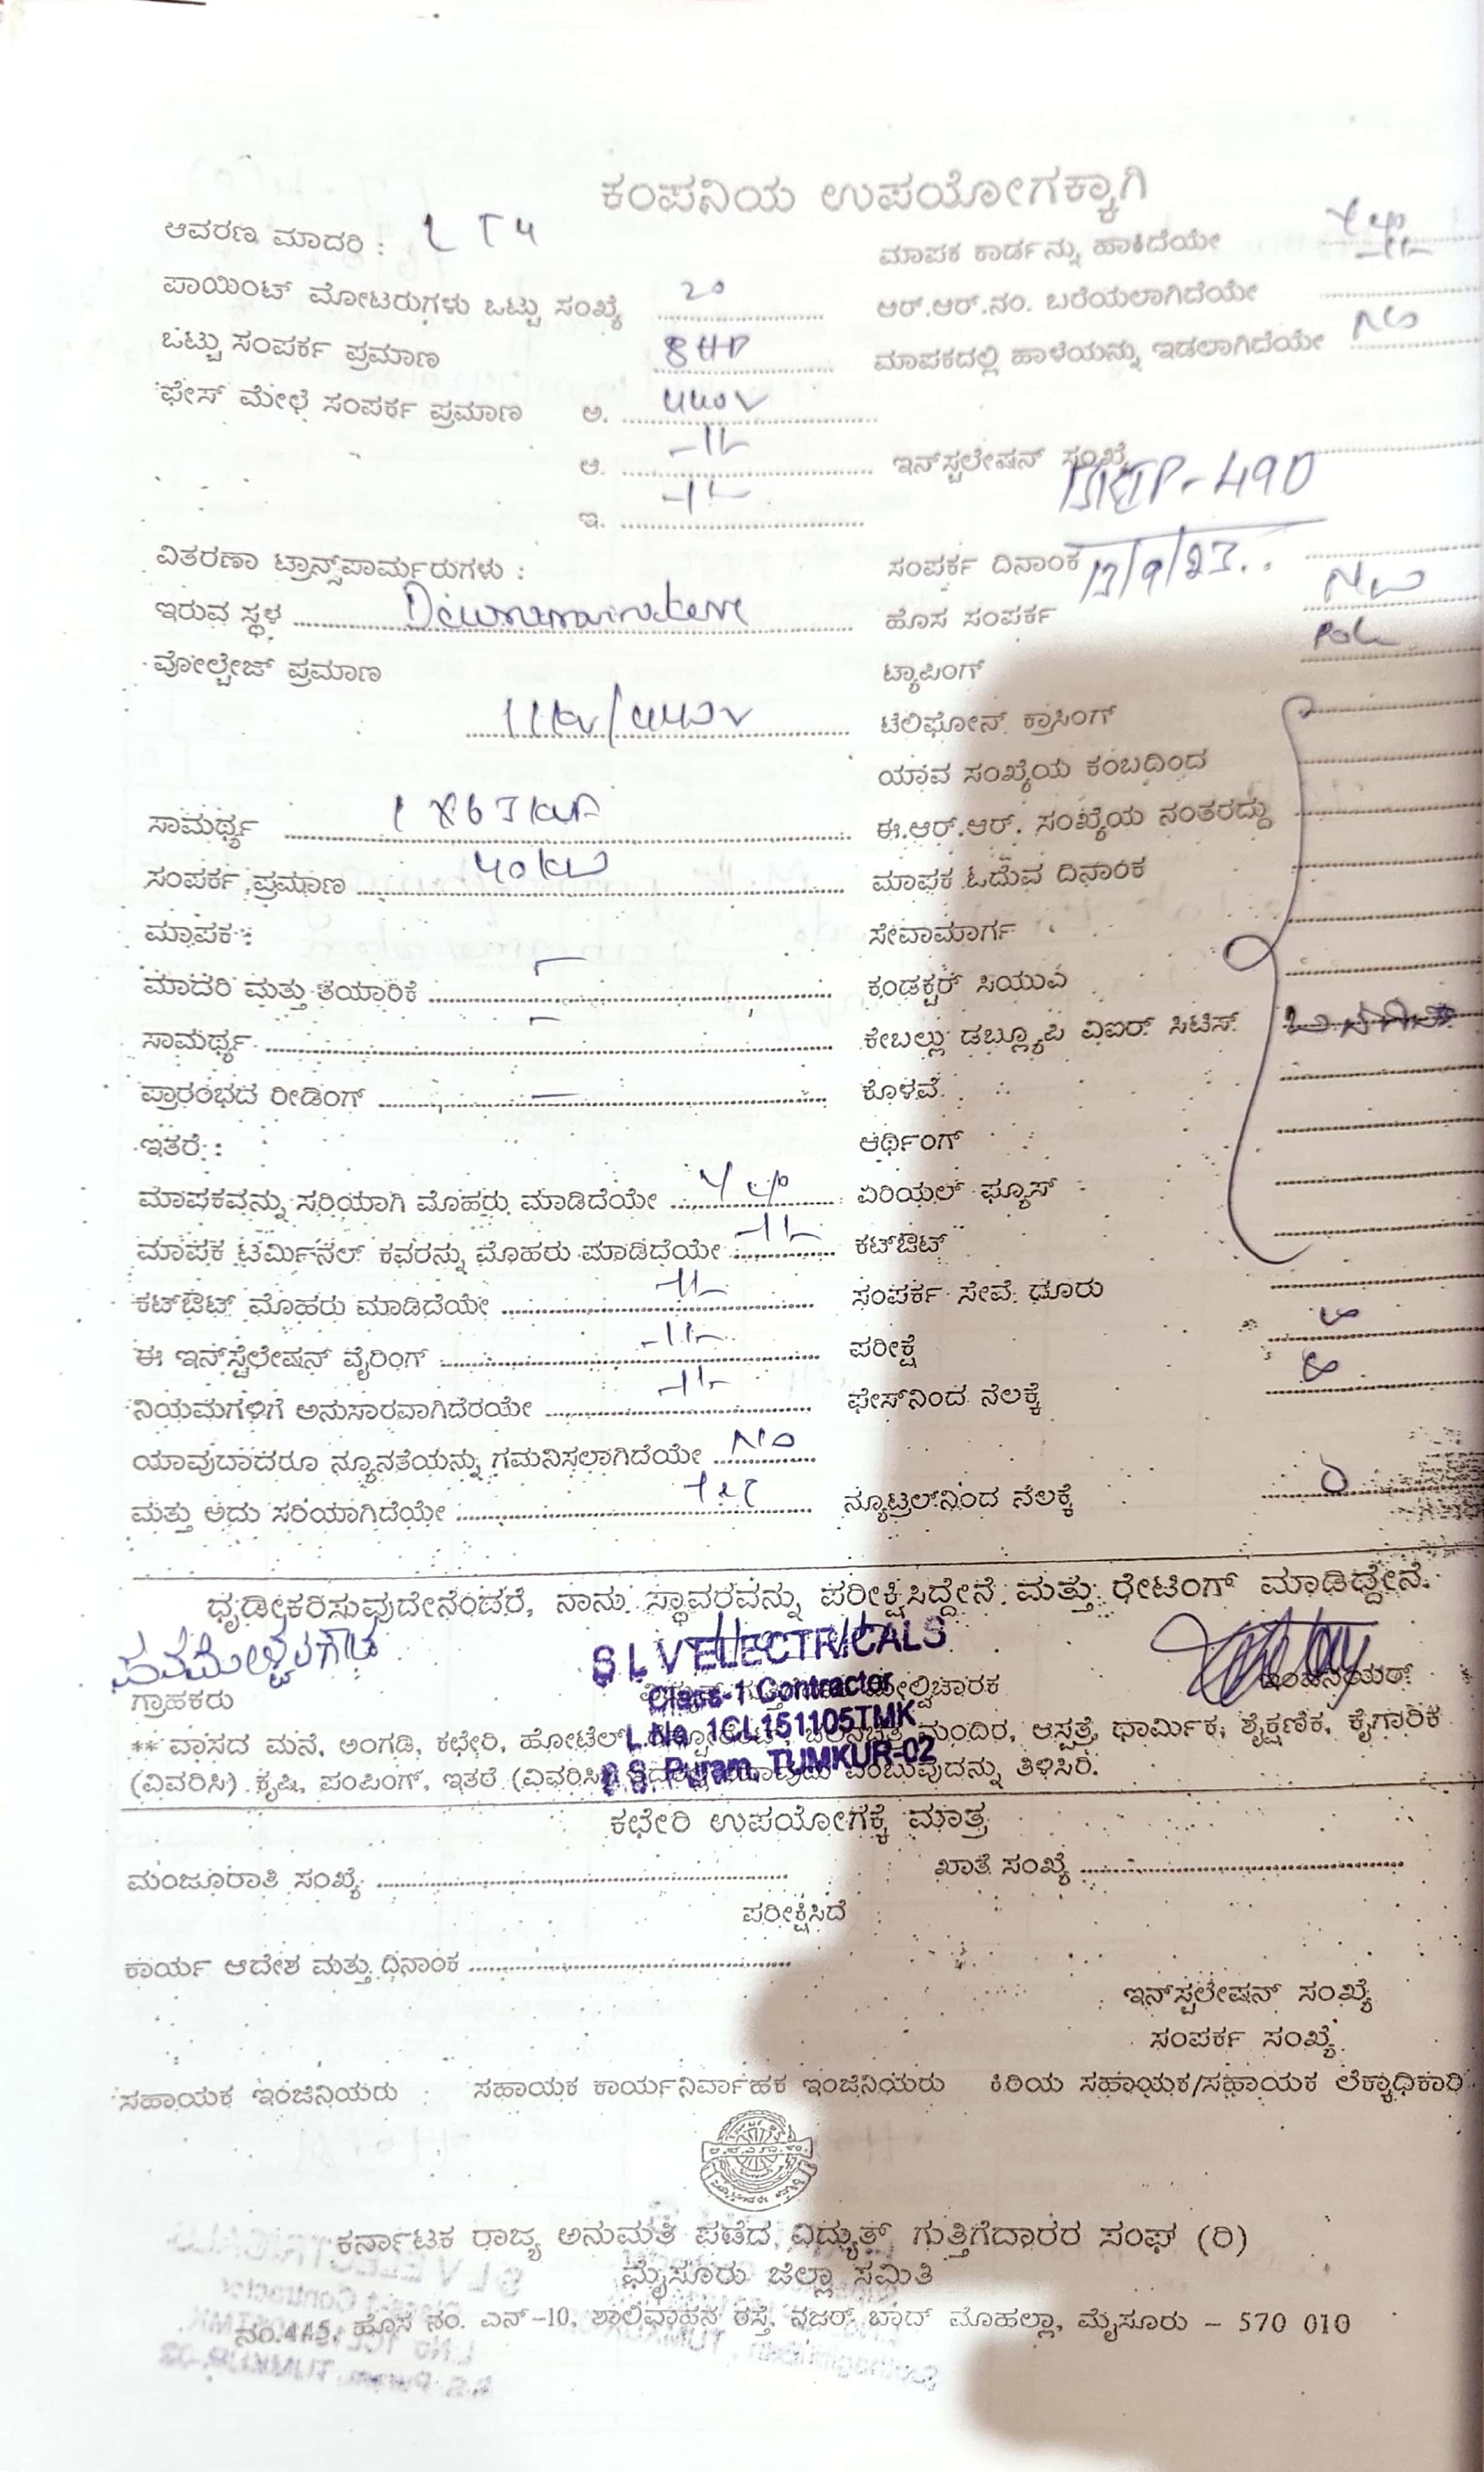 ಕಂಪನಿಯ ಉಪಯೋಗಕ್ಕಾಗಿ
ಆವರಣ ಮಾದರಿ : LT4
ಮಾಪಕ ಕಾರ್ಡನ್ನು ಹಾಕಿದೆಯೇ
ಪಾಯಿಂಟ್ ಮೋಟರುಗಳು ಒಟ್ಟು ಸಂಖ್ಯೆ 20
ಆರ್.ಆರ್.ನಂ. ಬರೆಯಲಾಗಿದೆಯೇ -11-
ಒಟ್ಟು ಸಂಪರ್ಕ ಪ್ರಮಾಣ 8HP
ಮಾಪಕದಲ್ಲಿ ಹಾಳೆಯನ್ನು ಇಡಲಾಗಿದೆಯೇ NO
ಫೇಸ್ ಮೇಲೆ ಸಂಪರ್ಕ ಪ್ರಮಾಣ ಅ. 440V
ಆ. -11-
ಇನ್‌ಸ್ಟಲೇಷನ್ ಸಂಖ್ಯೆ
ಇ. -11-
ವಿತರಣಾ ಟ್ರಾನ್ಸ್‌ಪಾರ್ಮರುಗಳು :
ಸಂಪರ್ಕ ದಿನಾಂಕ
ಇರುವ ಸ್ಥಳ
ಹೊಸ ಸಂಪರ್ಕ
ವೋಲ್ಟೇಜ್ ಪ್ರಮಾಣ
ಟ್ಯಾಪಿಂಗ್
11kv/440v
ಟೆಲಿಫೋನ್ ಕ್ರಾಸಿಂಗ್
ಯಾವ ಸಂಖ್ಯೆಯ ಕಂಬದಿಂದ
ಸಾಮರ್ಥ್ಯ
ಈ.ಆರ್.ಆರ್. ಸಂಖ್ಯೆಯ ನಂತರದ್ದು
ಸಂಪರ್ಕ ಪ್ರಮಾಣ 40kW
ಮಾಪಕ ಓದುವ ದಿನಾಂಕ
ಮಾಪಕ :
ಸೇವಾಮಾರ್ಗ
ಮಾದರಿ ಮತ್ತು ತಯಾರಿಕೆ
ಕಂಡಕ್ಟರ್ ಸಿಯುವ
ಸಾಮರ್ಥ್ಯ
ಕೇಬಲ್ಲು ಡಬ್ಲ್ಯೂಪಿ ವಿಐರ್ ಸಿಟಿಸ್
ಪ್ರಾರಂಭದ ರೀಡಿಂಗ್
ಕೊಳವೆ
ಇತರೆ :
ಆರ್ಥಿಂಗ್
ಮಾಪಕವನ್ನು ಸರಿಯಾಗಿ ಮೊಹರು ಮಾಡಿದೆಯೇ
ಏರಿಯಲ್ ಫ್ಯೂಸ್
ಮಾಪಕ ಟರ್ಮಿನಲ್ ಕವರನ್ನು ಮೊಹರು ಮಾಡಿದೆಯೇ -11-
ಕಟ್‌ಔಟ್
ಕಟ್‌ಔಟ್ ಮೊಹರು ಮಾಡಿದೆಯೇ -11-
ಸಂಪರ್ಕ ಸೇವೆ ಧೂರು
ಈ ಇನ್‌ಸ್ಟೆಲೇಷನ್ ವೈರಿಂಗ್ -11-
ಪರೀಕ್ಷೆ
ನಿಯಮಗಳಿಗೆ ಅನುಸಾರವಾಗಿದೆರಯೇ -11-
ಫೇಸ್‌ನಿಂದ ನೆಲಕ್ಕೆ
ಯಾವುದಾದರೂ ನ್ಯೂನತೆಯನ್ನು ಗಮನಿಸಲಾಗಿದೆಯೇ NO
ಮತ್ತು ಅದು ಸರಿಯಾಗಿದೆಯೇ
ನ್ಯೂಟ್ರಲ್‌ನಿಂದ ನೆಲಕ್ಕೆ 0
ಧೃಡೀಕರಿಸುವುದೇನೆಂದರೆ, ನಾನು ಸ್ಥಾವರವನ್ನು ಪರೀಕ್ಷಿಸಿದ್ದೇನೆ ಮತ್ತು ಧೇಟಿಂಗ್ ಮಾಡಿದ್ದೇನೆ.
S L V ELECTRICALS
Class-1 Contractor
L.No. 1CL151105TMK
S.S. Puram, TUMKUR-02
ಗ್ರಾಹಕರು ಮೇಲ್ವಿಚಾರಕ ಇಂಜಿನಿಯರ್
** ವಾಸದ ಮನೆ, ಅಂಗಡಿ, ಕಛೇರಿ, ಹೋಟೆಲ್ ಮಂದಿರ, ಆಸ್ಪತ್ರೆ, ಧಾರ್ಮಿಕ, ಶೈಕ್ಷಣಿಕ, ಕೈಗಾರಿಕ
(ವಿವರಿಸಿ) ಕೃಷಿ, ಪಂಪಿಂಗ್, ಇತರೆ (ವಿವರಿಸಿ) ಎಂಬುವುದನ್ನು ತಿಳಿಸಿರಿ.
ಕಛೇರಿ ಉಪಯೋಗಕ್ಕೆ ಮಾತ್ರ
ಮಂಜೂರಾತಿ ಸಂಖ್ಯೆ
ಖಾತೆ ಸಂಖ್ಯೆ
ಪರೀಕ್ಷಿಸಿದೆ
ಕಾರ್ಯ ಆದೇಶ ಮತ್ತು ದಿನಾಂಕ
ಇನ್‌ಸ್ಟಲೇಷನ್ ಸಂಖ್ಯೆ
ಸಂಪರ್ಕ ಸಂಖ್ಯೆ
ಸಹಾಯಕ ಇಂಜಿನಿಯರು ಸಹಾಯಕ ಕಾರ್ಯನಿರ್ವಾಹಕ ಇಂಜಿನಿಯರು ಕಿರಿಯ ಸಹಾಯಕ/ಸಹಾಯಕ ಲೆಕ್ಕಾಧಿಕಾರಿ
ಕರ್ನಾಟಕ ರಾಜ್ಯ ಅನುಮತಿ ಪಡೆದ ವಿದ್ಯುತ್ ಗುತ್ತಿಗೆದಾರರ ಸಂಘ (ರಿ)
ಮೈಸೂರು ಜಿಲ್ಲಾ ಸಮಿತಿ
ನಂ.445, ಹೊಸ ನಂ. ಎನ್-10, ಶಾಲಿವಾಹನ ರಸ್ತೆ, ನಜರ್ ಬಾದ್ ಮೊಹಲ್ಲಾ, ಮೈಸೂರು - 570 010